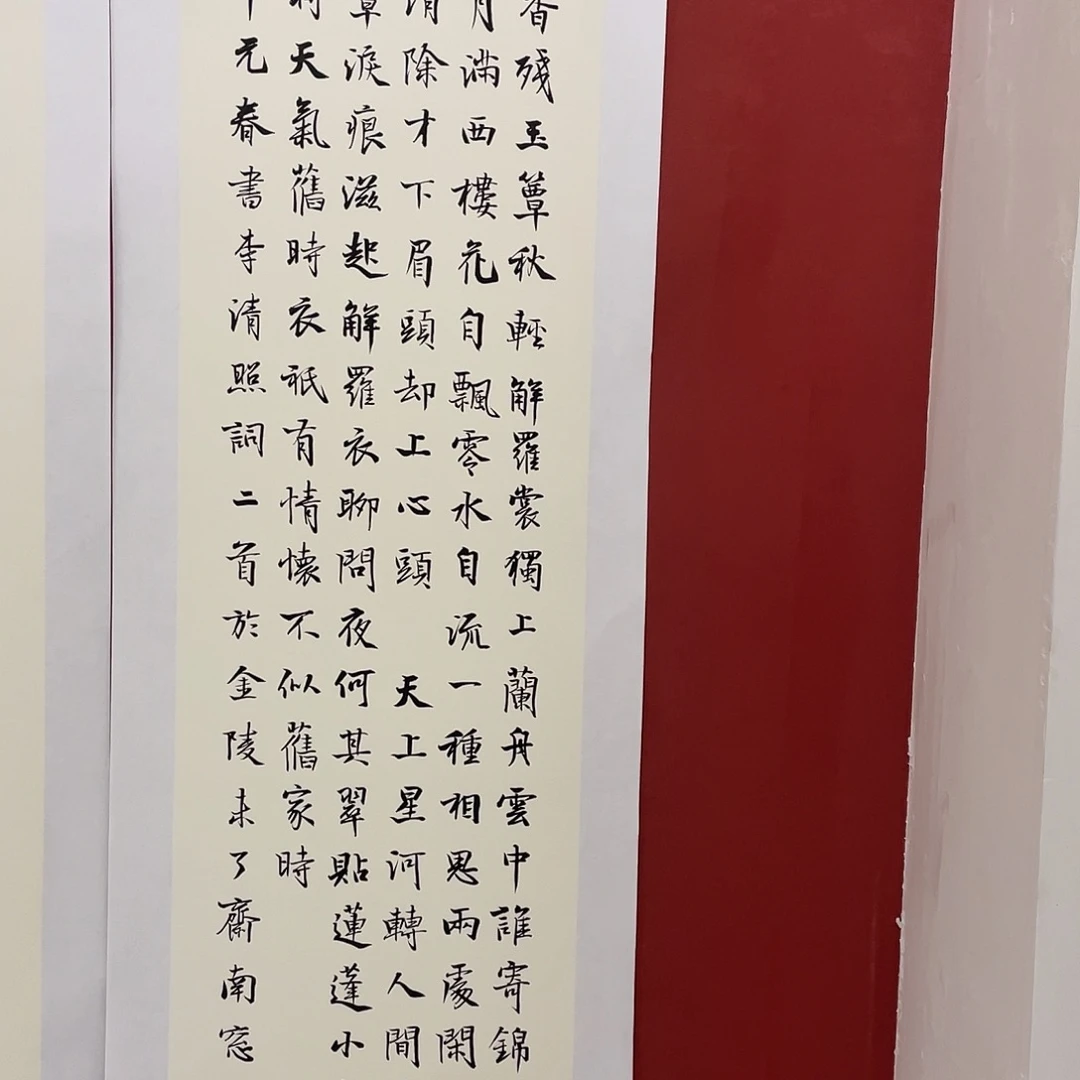 香残玉簟秋輕解羅裳獨上蘭舟雲中誰寄錦
月滿西樓花自飄零水自流一種相思兩處閑
消除才下眉頭却上心頭 天上星河轉人間
簟淚痕滋起解羅衣聊問夜何其翠貼蓮蓬小
時天氣舊時衣祇有情懷不似舊家時
元春書李清照詞二首於金陵未了齋南窓